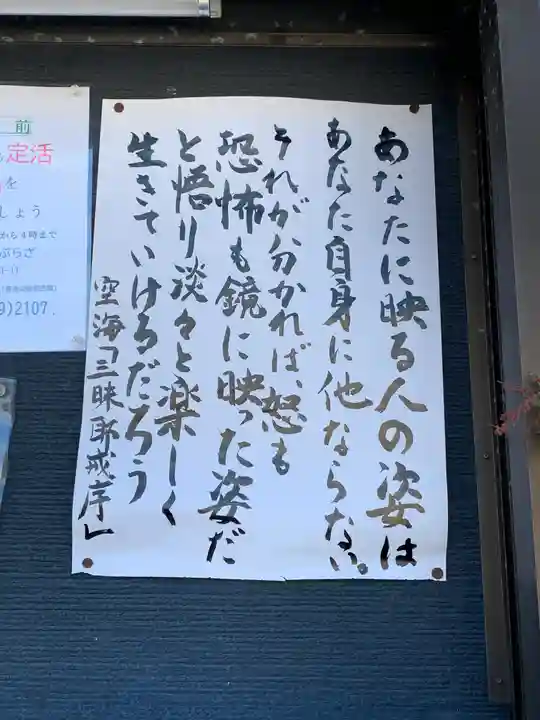 あなたに映る人の姿は
あなた自身に他ならない。
それが分かれば、怒も
恐怖も鏡に映った姿だ
と悟り淡々と楽しく
生きていけるだろう
空海「三昧耶戒序」
前
定活
を
しょう
から4時まで
ぷらざ
9)2107.